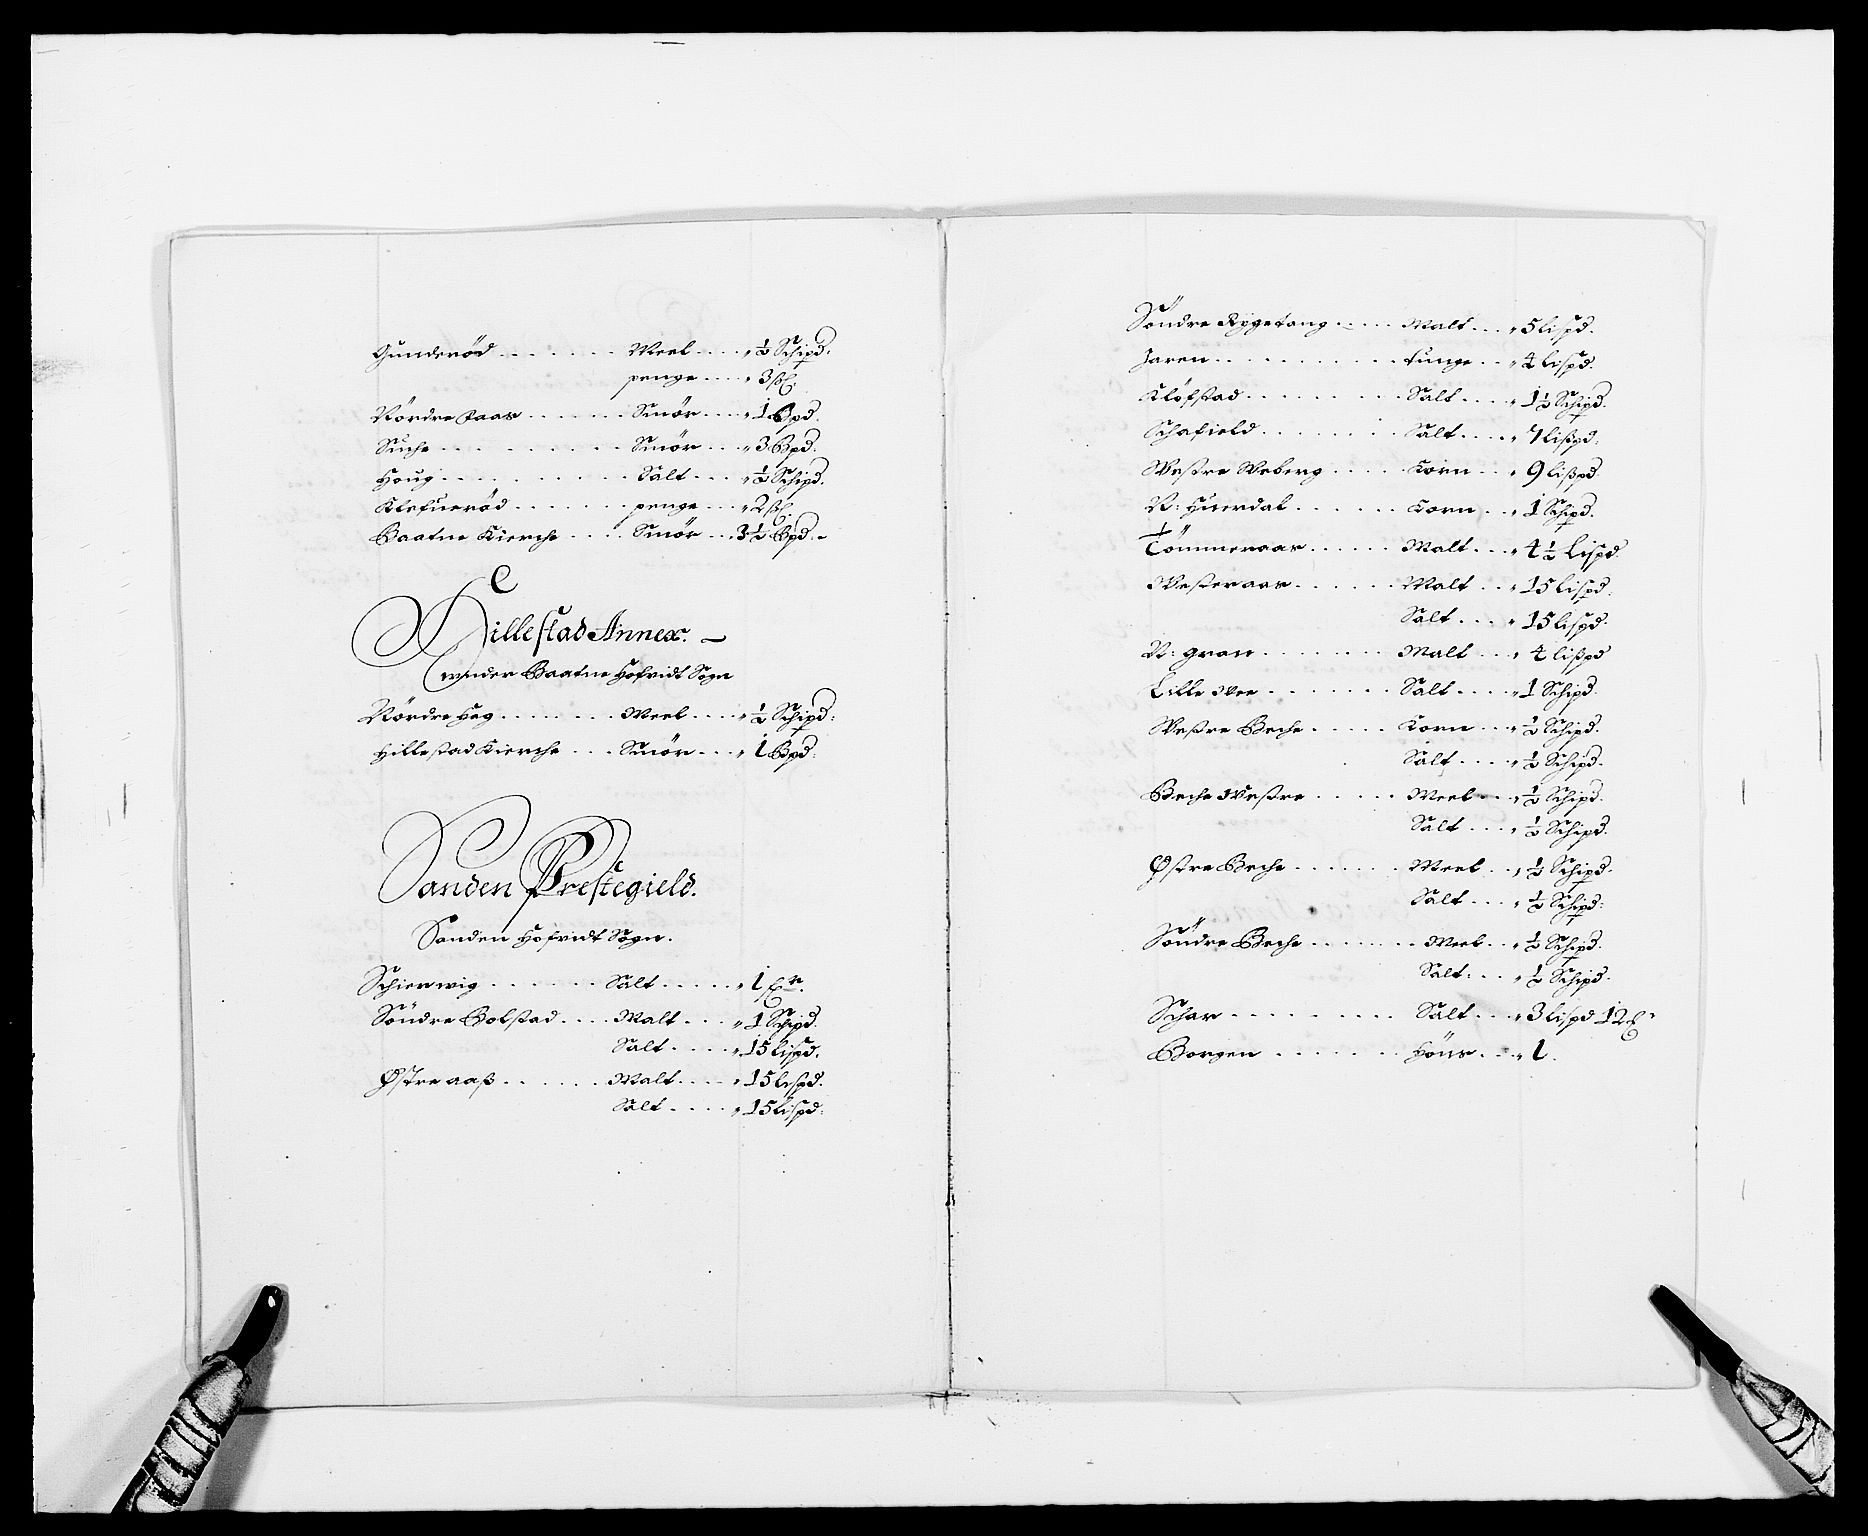 Gunderöd . . . . . . . Meel . . . . „ ½ Schipd.
penge . . . . „ 3 ß.
Nördre Aaas . . . . . . Smör . . . . „ 1 Bpd.
Suche . . . . . . . . Smör . . . „ 3 Bpd.
Houg . . . . . . . . . Salt . . . „ ½ Schipd.
Klefueröd . . . . . . penge . . . „ 2 ß.
Baatne Kierche . . . . Smör . . . 3½ Bpd.
Hillestad Annex.
under Baatne Hofvidt Sogn
Nördre Hag . . . . . . . Meel . . . . „ ½ Schipd:
Hillestad Kierche . . . Smör . . . „ 1 Bpd:
Sanden Prestegield.
Sanden Hofvidt Sogn.
Schierwig . . . . . . Salt . . . . . „ 1
Söndre Bolstad . . . . Malt . . . „ 1 Schipd.
Salt . . . . „ 15 Lispd.
Østre aaß . . . . . . Malt . . . . „ 15 Lispd.
Salt . . . . „ 15 Lispd:
Söndre Rygetang . . . . . Malt . . . „ 5 Lispd.
Jaren . . . . . . . . . . tunge . . „ 4 Lispd.
Klöfstad . . . . . . . . . Salt . . . . „ 1½ Schipd.
Schafield . . . . . . . . Salt . . . . „ 7 Lißpd.
Westre Weberg . . . . . Korn . . . „ 9 Lißpd.
N: Hierdal . . . . . . Korn . . . „ 1 Schipd.
Tömmeraas . . . . . . Malt . . . „ 4½ Lispd.
Westeraas . . . . . . Malt . . . „ 15 Lispd.
Salt . . . „ 15 Lispd.
N: gran . . . . . . . . Malt . . . „ 4 Lißpd
Lille Wee . . . . . . . Salt . . . . „ 1 Schipd.
Westre Beche . . . . . Korn . . . „ ½ Schipd.
Salt . . . . „ ½ Schipd.
Beche Westre . . . . . Meel . . . „ ½ Schipd.
Salt . . . „ ½ Schipd.
Østre Beche . . . . . . Meel . . . „ ½ Schipd.
Salt . . . „ ½ Schipd:
Söndre Beche . . . . . . . Meel . . „ ½ Schipd.
Salt . . . „ ½ Schipd.
Schar . . . . . . . . . Salt . . . „ 3 Lispd 12 ℔
Borgen . . . . . . . Höns . . . „ 1.